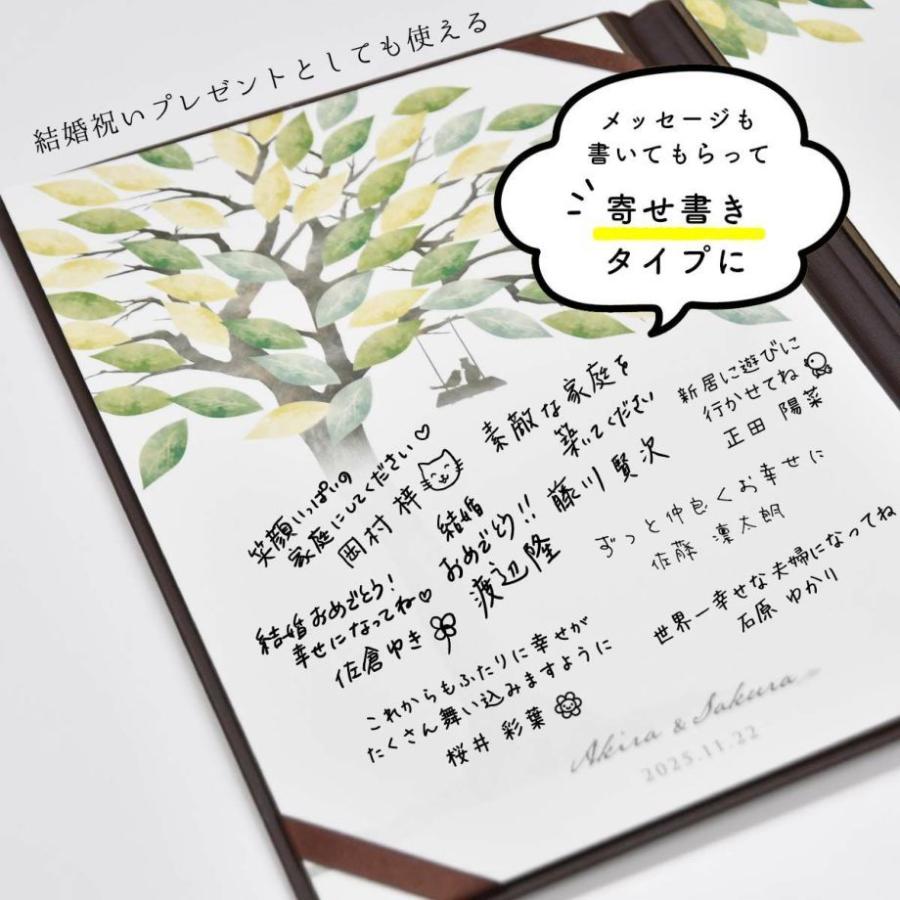 結婚祝いプレゼントとしても使える
メッセージも
書いてもらって
寄せ書き
タイプに
笑顔いっぱいの
家庭にしてください♡
岡村 梓
結婚
おめでとう!!
渡辺隆
素敵な家庭を
築いてください
藤川 賢次
新居に遊びに
行かせてね
正田 陽菜
ずっと仲良くお幸せに
佐藤 凛太朗
結婚おめでとう!
幸せになってね♡
佐倉ゆき
世界一幸せな夫婦になってね
石原 ゆかり
これからもふたりに幸せが
たくさん舞い込みますように
桜井 彩葉
Akira & Sakura
2025.11.22